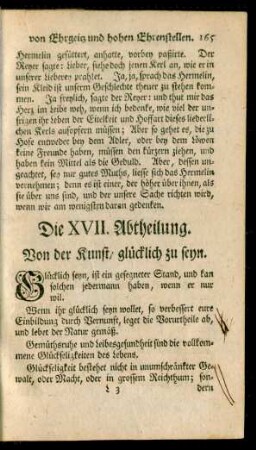 von Ehrgeitz und hohen Ehrenstellen. 165
Hermelin gefüttert, anhatte, vorbey paßirte. Der
Reyer sagte: Lieber, siehe doch jenen Kerl an, wie er in
unserer Lieberey prahlet. Ja, ja, sprach das Hermelin,
sein Kleid ist unserm Geschlechte theuer zu stehen kom-
men. Ja freylich, sagte der Reyer: und thut mir das
Herz im Leibe weh, wenn ich bedenke, wie viel der un-
srigen ihr leben der Eitelkeit und Hoffart dieses liederli-
chen Kerls aufopfern müssen; Aber so gehet es, die zu
Hofe entweder bey dem Adler, oder bey dem Löwen
keine Freunde haben, müssen den kürzern ziehen, und
haben kein Mittel als die Geduld. Aber, dessen un-
geachtet, sey nur gutes Muths, liesse sich das Hermelin
vernehmen; denn es ist einer, der höher über ihnen, als
sie über uns sind, und der unsere Sache richten wird,
wenn wir am wenigsten daran gedenken.
Die XVII. Abtheilung.
Von der Kunst/ glücklich zu seyn.
Glücklich seyn, ist ein gesegneter Stand, und kan
solchen jedermann haben, wenn er nur
wil.
Wenn ihr glücklich seyn wollet, so verbessert eure
Einbildung durch Vernunft, leget die Vorurtheile ab,
und lebet der Natur gemäß.
Gemüthsruhe und Leibesgesundheit sind die vollkom-
mene Glückseligkeiten des Lebens.
Glückseligkeit bestehet nicht in unumschränkter Ge-
walt, oder Macht, oder in grossem Reichthum; son-
L 3 dern